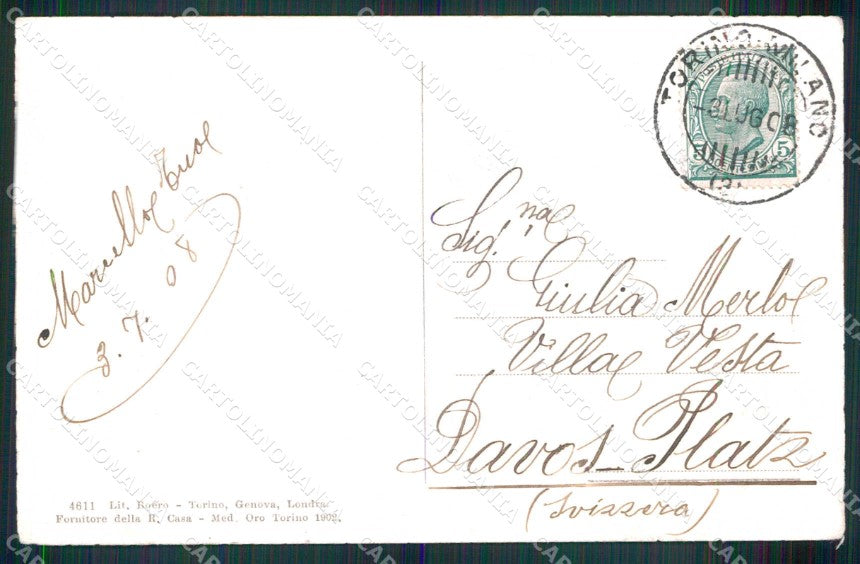 Marcello
3. 7. 08
TORINO-MILANO
LUG 08
5
Sig.na
Giulia Merlo
Villa Vesta
Davos-Platz
(Svizzera)
4611 Lit. Roero - Torino, Genova, Londra
Fornitore della R. Casa - Med. Oro Torino 1902.
CARTOLINOMANIA